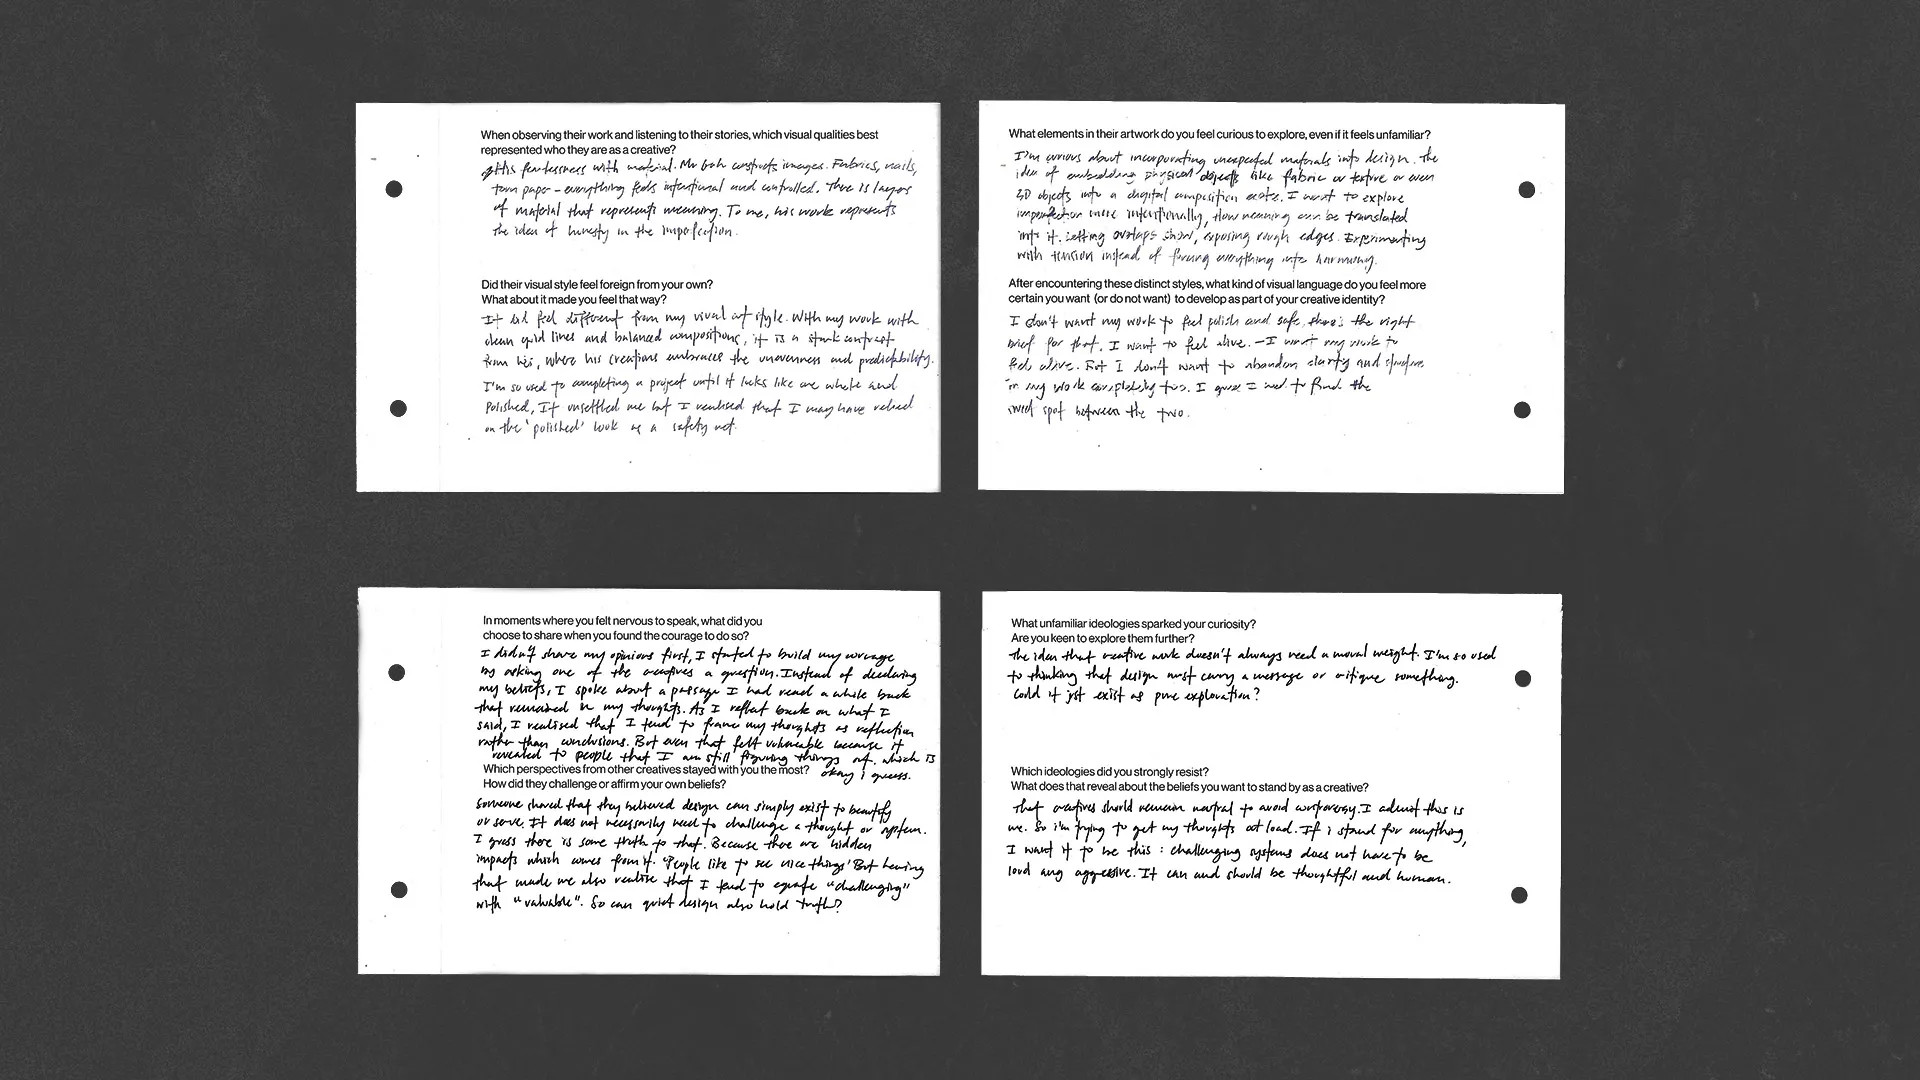 When observing their work and listening to their stories, which visual qualities best
represented who they are as a creative?
His fearlessness with material. Mr Goh constructs images. Fabrics, nails,
torn paper – everything feels intentional and controlled. There is layers
of material that represents meaning. To me, his work represents
the idea of honesty in the imperfection.
Did their visual style feel foreign from your own?
What about it made you feel that way?
It did feel different from my visual art style. With my work with
clean grid lines and balanced compositions, it is a stark contrast
from his, where his creations embraces the unevenness and predictability.
I'm so used to completing a project until it looks like one whole and
polished, It unsettled me but I realised that I may have relied
on the 'polished' look as a safety net.
What elements in their artwork do you feel curious to explore, even if it feels unfamiliar?
I'm curious about incorporating unexpected materials into design. The
idea of embedding physical objects like fabric or texture or even
3D objects into a digital composition I want to explore
imperfection more intentionally, How meaning can be translated
into it. Letting overlaps show, exposing rough edges. Experimenting
with tension instead of forcing everything into harmony.
After encountering these distinct styles, what kind of visual language do you feel more
certain you want (or do not want) to develop as part of your creative identity?
I don't want my work to feel polish and safe, there's the right
brief for that. I want to feel alive. – I want my work to
feel alive. But I don't want to abandon clarity and structure
in my work completely too. I guess I need to find the
sweet spot between the two.
In moments where you felt nervous to speak, what did you
choose to share when you found the courage to do so?
I didn't share my opinions first, I started to build my courage
by asking one of the creatives a question. Instead of declaring
my beliefs, I spoke about a passage I had read a while back
that remained in my thoughts. As I reflect back on what I
said, I realised that I tend to frame my thoughts as reflection
rather than conclusions. But even that felt vulnerable because it
revealed to people that I am still figuring things out. which is
okay i guess.
Which perspectives from other creatives stayed with you the most?
How did they challenge or affirm your own beliefs?
Someone shared that they believed design can simply exist to beautify
or serve. It does not necessarily need to challenge a thought or system.
I guess there is some truth to that. Because there are hidden
impacts which comes from it. 'People like to see nice things' But hearing
that made me also realise that I tend to equate "challenging"
with "valuable". So can quiet design also hold truth?
What unfamiliar ideologies sparked your curiosity?
Are you keen to explore them further?
The idea that creative work doesn't always need a moral weight. I'm so used
to thinking that design must carry a message or critique something.
Could it jst exist as pure exploration?
Which ideologies did you strongly resist?
What does that reveal about the beliefs you want to stand by as a creative?
That creatives should remain neutral to avoid controversy. I admit this is
me. So i'm trying to get my thoughts out loud. If i stand for anything,
I want it to be this : challenging systems does not have to be
loud ang aggressive. It can and should be thoughtful and human.